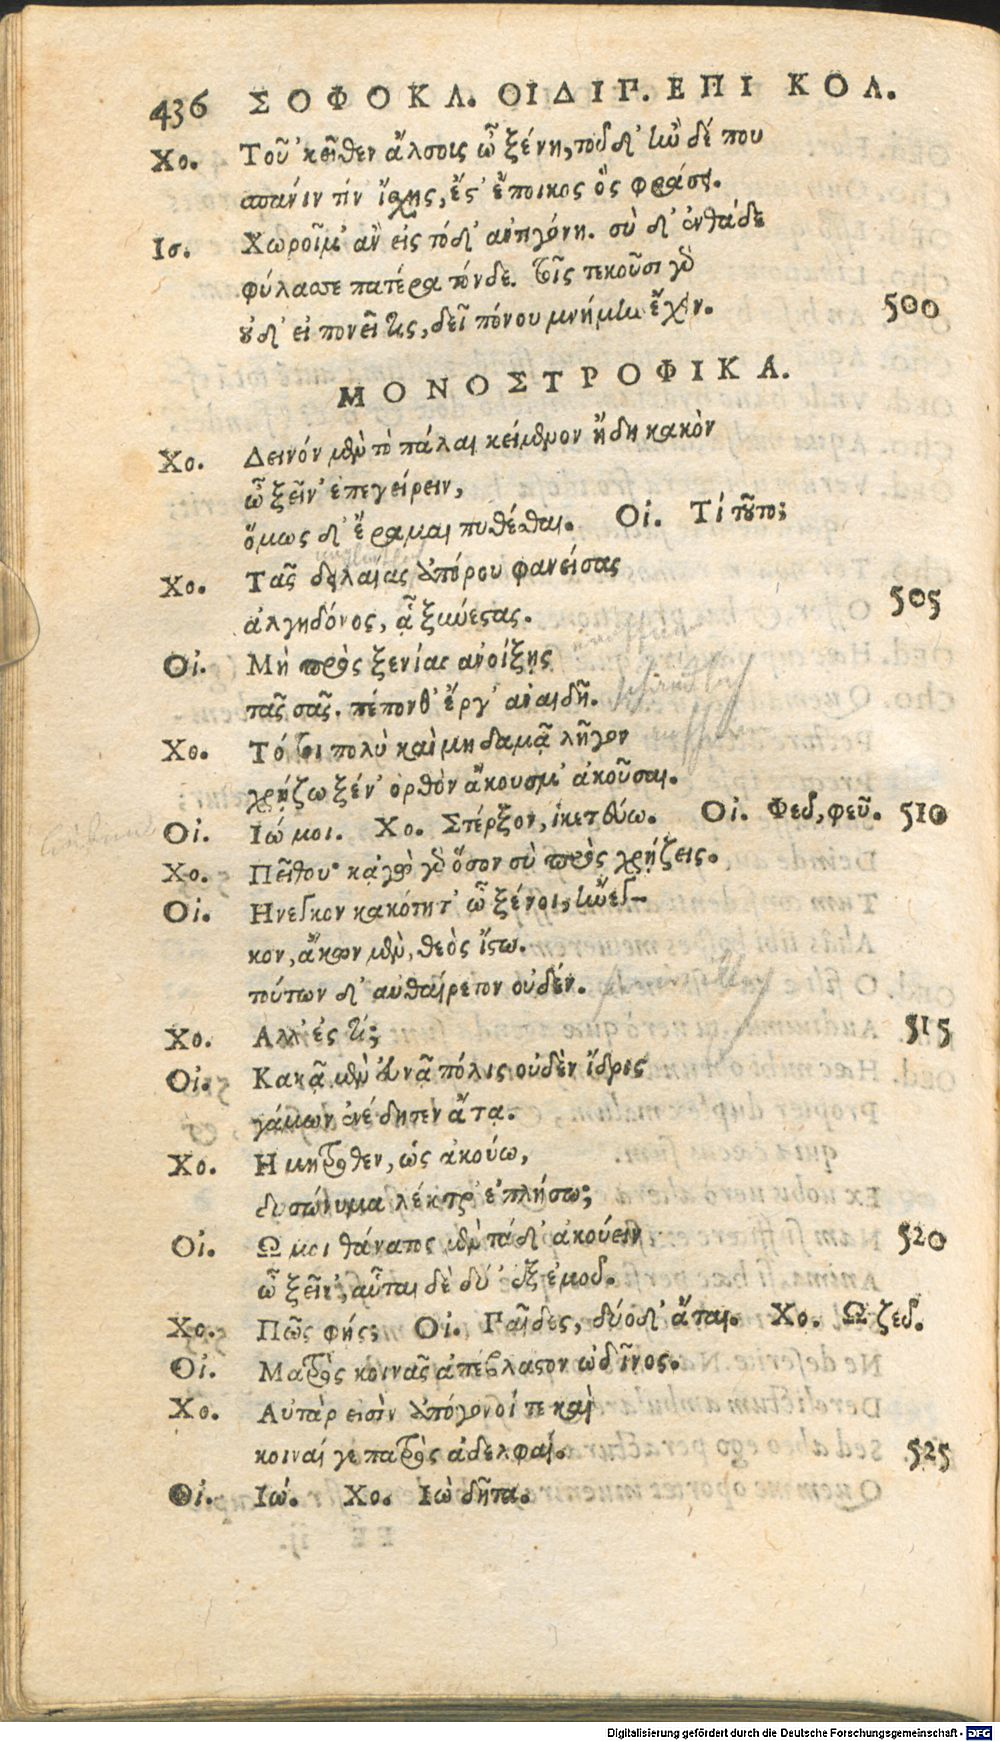 436 ΣΟΦΟΚΛ. ΟΙΔΙΠ. ΕΠΙ ΚΟΛ.
Χο. Τοῦ ᾿κεῖθεν ἄλσοις ὦ ξένη, τοῦδ᾿ ἢν δέ που
σπάνιν τίν᾿ ἴσχῃς, ἔστ᾿ ἔποικος ὃς φράσει.
Ισ. Χωροῖμ᾿ ἂν εἰς τόδ᾿ ἀντιγόνη. σὺ δ᾿ ἐνθάδε
φύλασσε πατέρα τόνδε. τοῖς τεκοῦσι γὰρ
οὐδ᾿ εἰ πονεῖ τις, δεῖ πόνου μνήμην ἔχειν. 500
ΜΟΝΟΣΤΡΟΦΙΚΑ.
Χο. Δεινόν μὲν τὸ πάλαι κείμενον ἤδη κακὸν
ὦ ξεῖν᾿ ἐπεγείρειν,
ὅμως δ᾿ ἔραμαι πυθέσθαι. Οἰ. Τί τοῦτο;
Χο. Τᾶς δηλαίας ἀπόρου φανείσας
ἀλγηδόνος, ᾇ ξυνέστας. 505
Οἰ. Μὴ πρὸς ξενίας ἀνοίξῃς
τᾶς σᾶς. πέπονθ᾿ ἔργ᾿ ἀναιδῆ.
Χο. Τό τοι πολὺ καὶ μηδαμᾷ λῆγον
χρῄζω ξέν᾿ ὀρθὸν ἄκουσμ᾿ ἀκοῦσαι.
Οἰ. Ιώ μοι. Χο. Στέρξον, ἱκετεύω. Οἰ. Φεῦ, φεῦ. 510
Χο. Πείθου· κᾀγὼ γὰρ ὅσον σὺ πρὸς χρῄζεις.
Οἰ. Ηνεγκον κακότητ᾿ ὦ ξένοι, ἤνεγ-
κον, ἄκων μὲν, θεὸς ἴστω.
τούτων δ᾿ αὐθαίρετον οὐδέν.
Χο. Αλλ᾿ ἐς τί; 515
Οἰ. Κακᾷ μὲν εὐνᾷ πόλις οὐδὲν ἴδρις
γάμων ἐνέδησεν ἄτᾳ.
Χο. Η μητρόθεν, ὡς ἀκούω,
δυσώνυμα λέκτρ᾿ ἐπλήσω;
Οἰ. Ω μοι θάνατος μὲν τάδ᾿ ἀκούειν 520
ὦ ξεῖν᾿, αὗται δὲ δύ᾿ ἐξ ἐμοῦ.
Χο. Πῶς φής; Οἰ. Παῖδες, δύο δ᾿ ἄται. Χο. Ω ζεῦ.
Οἰ. Ματρὸς κοινᾶς ἀπέβλαστον ὠδῖνος.
Χο. Αὐτὰρ εἰσὶν ἀπόγονοί τε καὶ
κοιναί γε πατρὸς ἀδελφαί. 525
Οἰ. Ιώ. Χο. Ιὼ δῆτα.
Digitalisierung gefördert durch die Deutsche Forschungsgemeinschaft - DFG